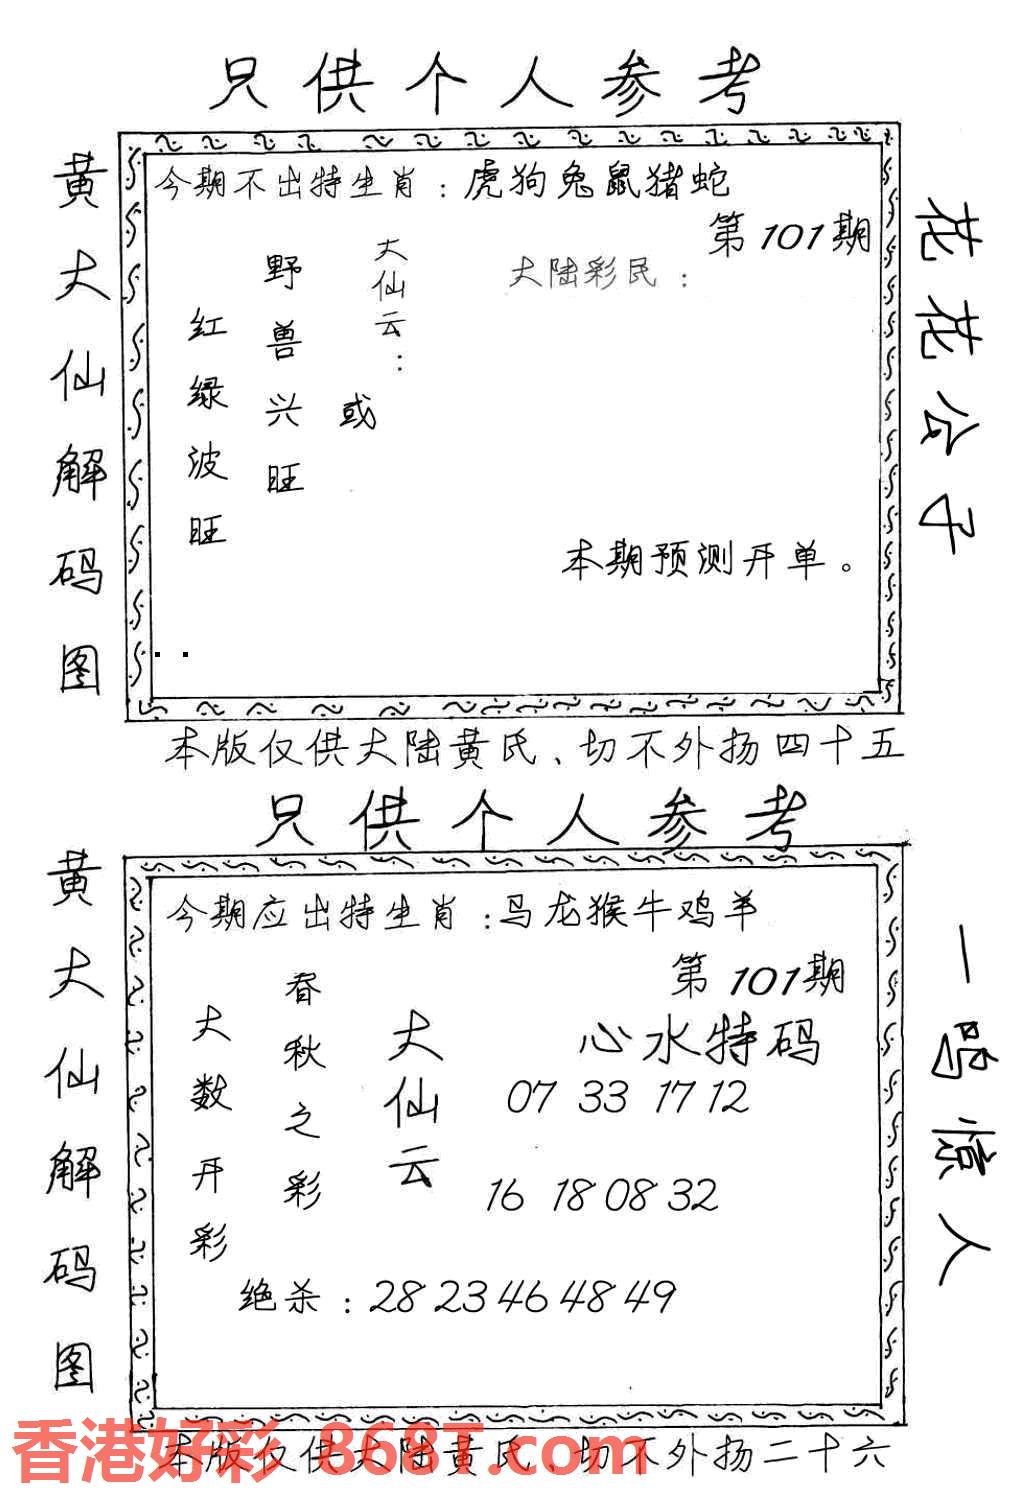 只供个人参考
黄大仙解码图
今期不出特生肖：虎狗兔鼠猪蛇
第101期
大陆彩民：
大仙云：
野兽兴旺
或
红绿波旺
本期预测开单。
花花公子
本版仅供大陆黄氏、切不外扬四十五
只供个人参考
黄大仙解码图
今期应出特生肖：马龙猴牛鸡羊
第101期
心水特码
07 33 17 12
16 18 08 32
大仙云
春秋之彩
大数开彩
绝杀：28 23 46 48 49
一鸣惊人
本版仅供大陆黄氏、切不外扬二十六
香港好彩 868T.com